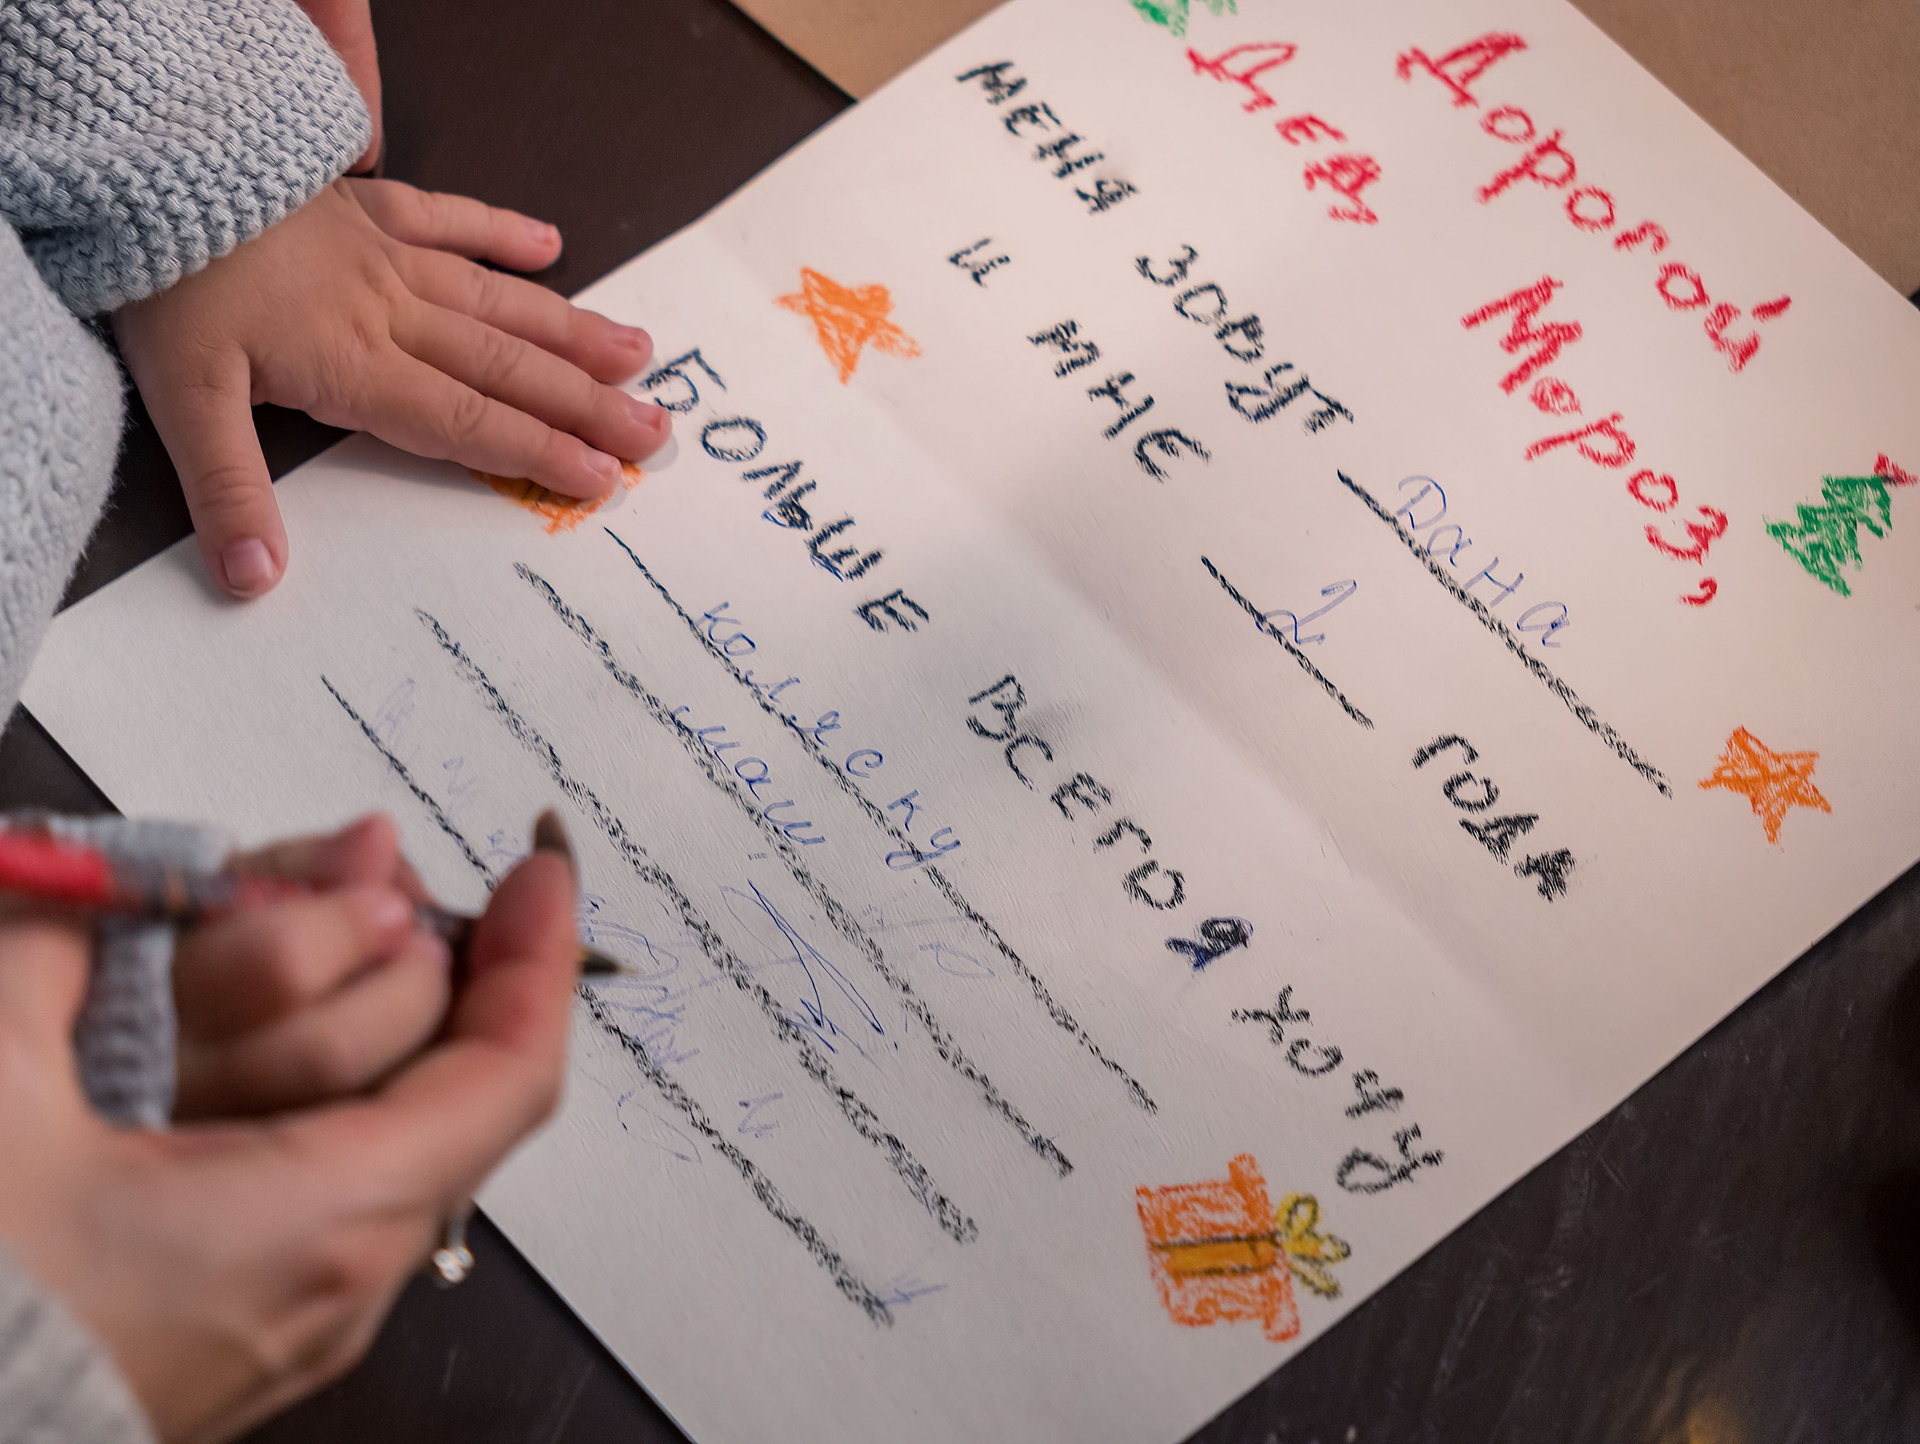 Дорогой
Дед Мороз,
МЕНЯ ЗОВУТ Дана
И МНЕ 2 ГОДА
БОЛЬШЕ ВСЕГО Я ХОЧУ
коляску